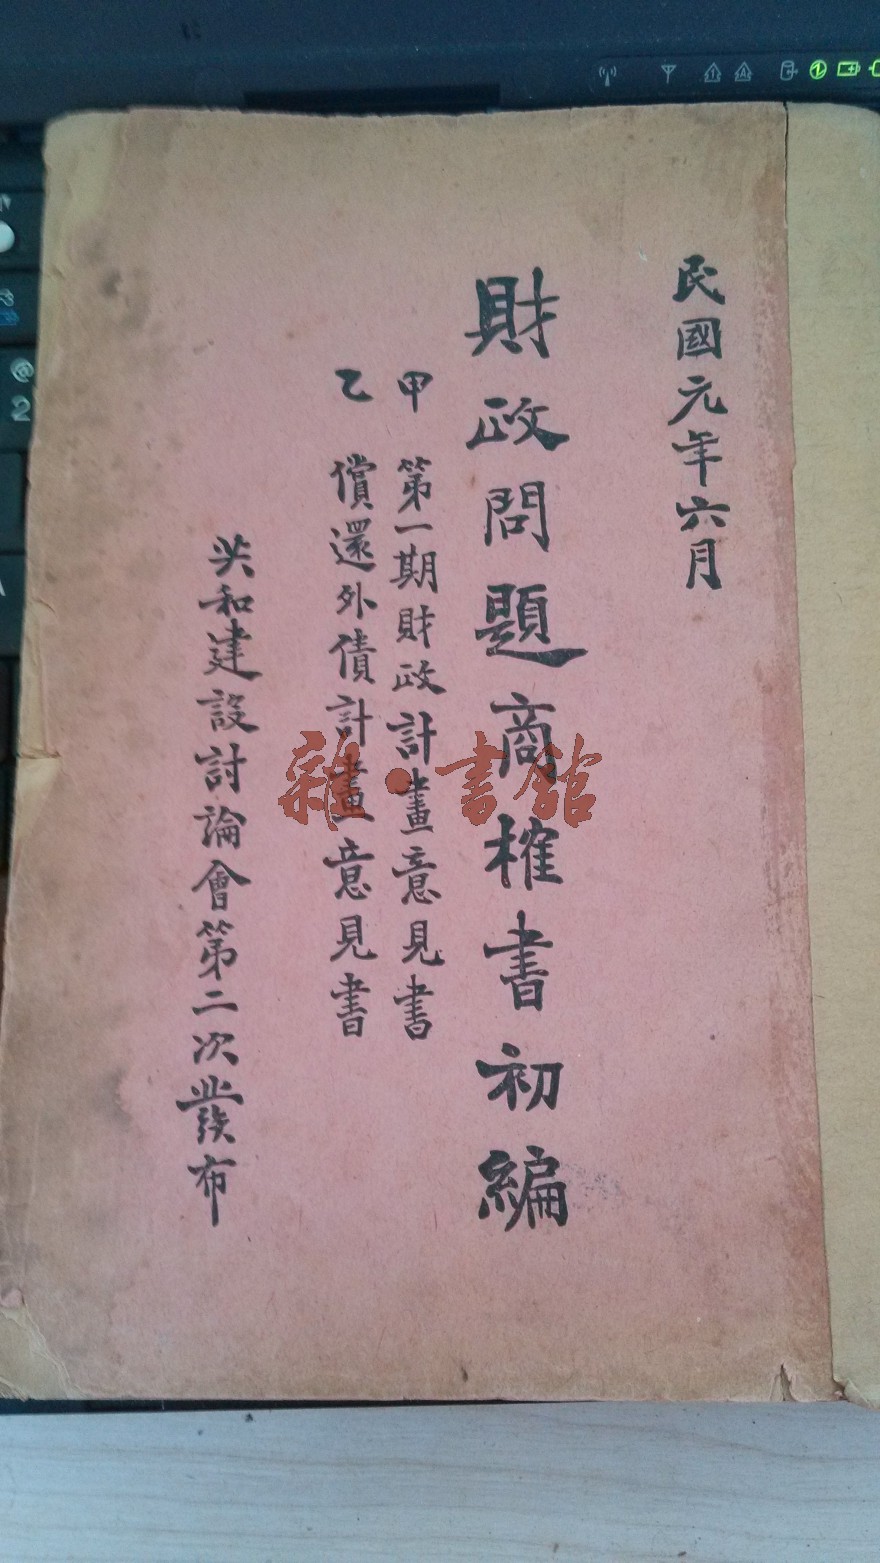 民國元年六月
財政問題商榷書初編
甲 第一期財政計畫意見書
乙 償還外債計畫意見書
共和建設討論會第二次發布
雜·書館
@
2